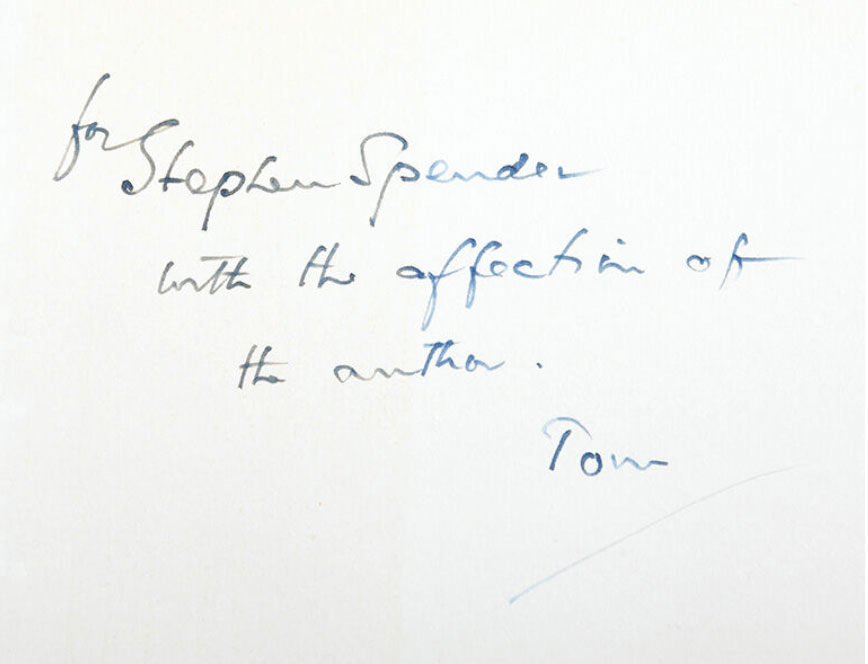 for Stephen Spender
with the affection of
the author.
Tom